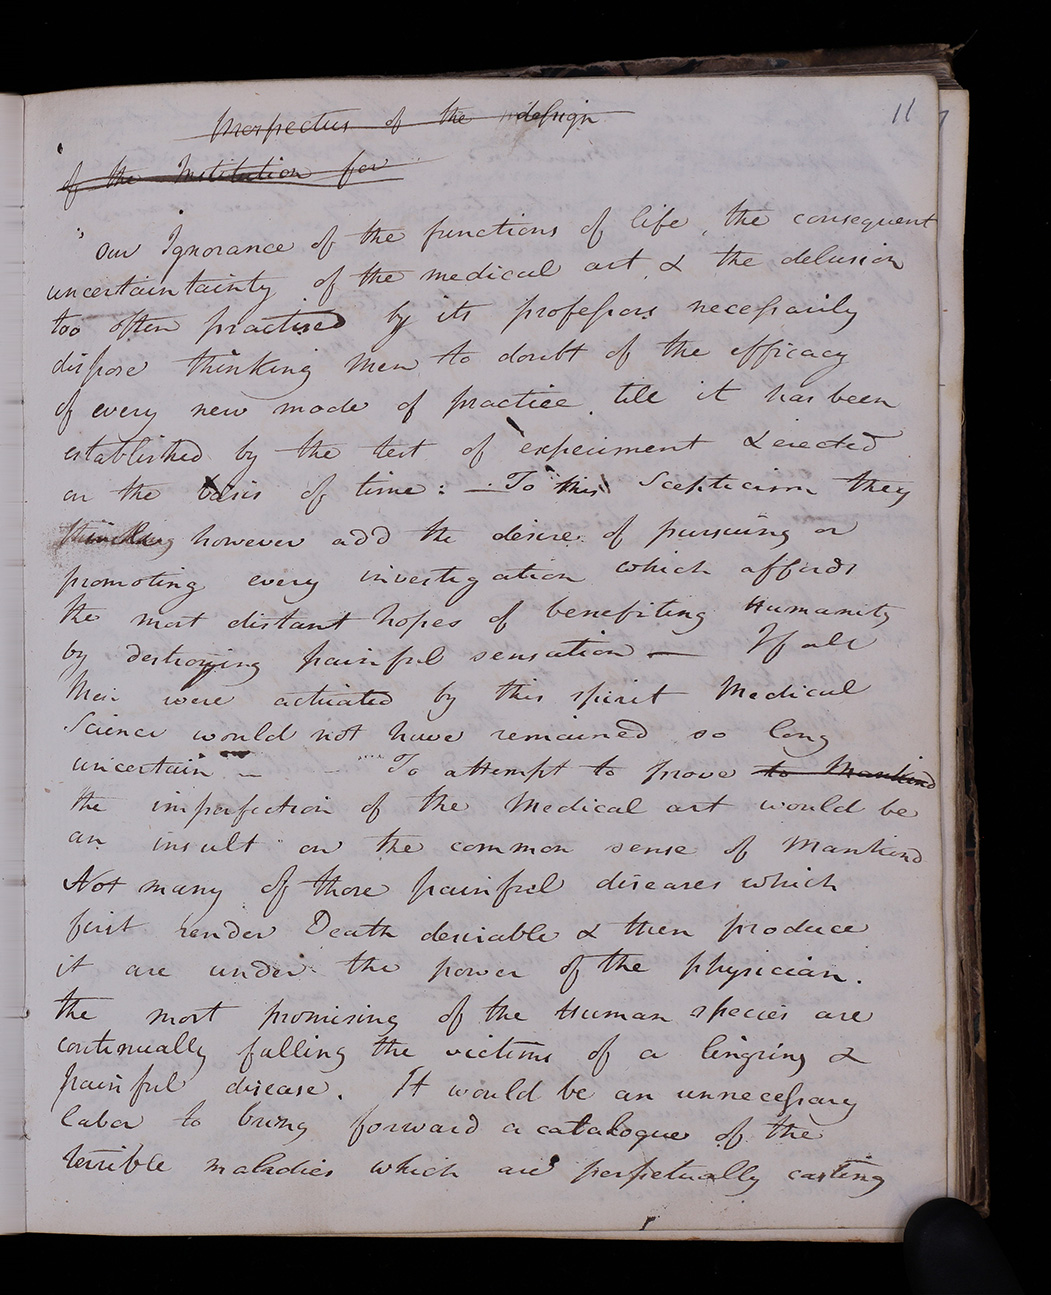 11
Prospectus of the design
of the Institution for
" Our Ignorance of the functions of life, the consequent
uncertaintainty of the medical art, & the delusion
too often practised by its professors necessarily
dispose thinking men to doubt of the efficacy
of every new mode of practice till it has been
established by the test of experiment & erected
on the basis of time: — To this Scepticism they
however add the desire of pursuing or
promoting every investigation which affords
the most distant hopes of benefiting Humanity
by destroying painful sensation — If all
Men were actuated by this spirit Medical
Science would not have remained so long
uncertain — To attempt to prove to Mankind
the imperfection of the Medical art would be
an insult on the common sense of Mankind
Not many of those painful diseases which
first render Death desirable & then produce
it are under the power of the physician.
The most promising of the Human species are
continually falling the victims of a lingring &
painful disease. It would be an unnecessary
labor to bring forward a catalogue of the
terrible maladies which are perpetually casting